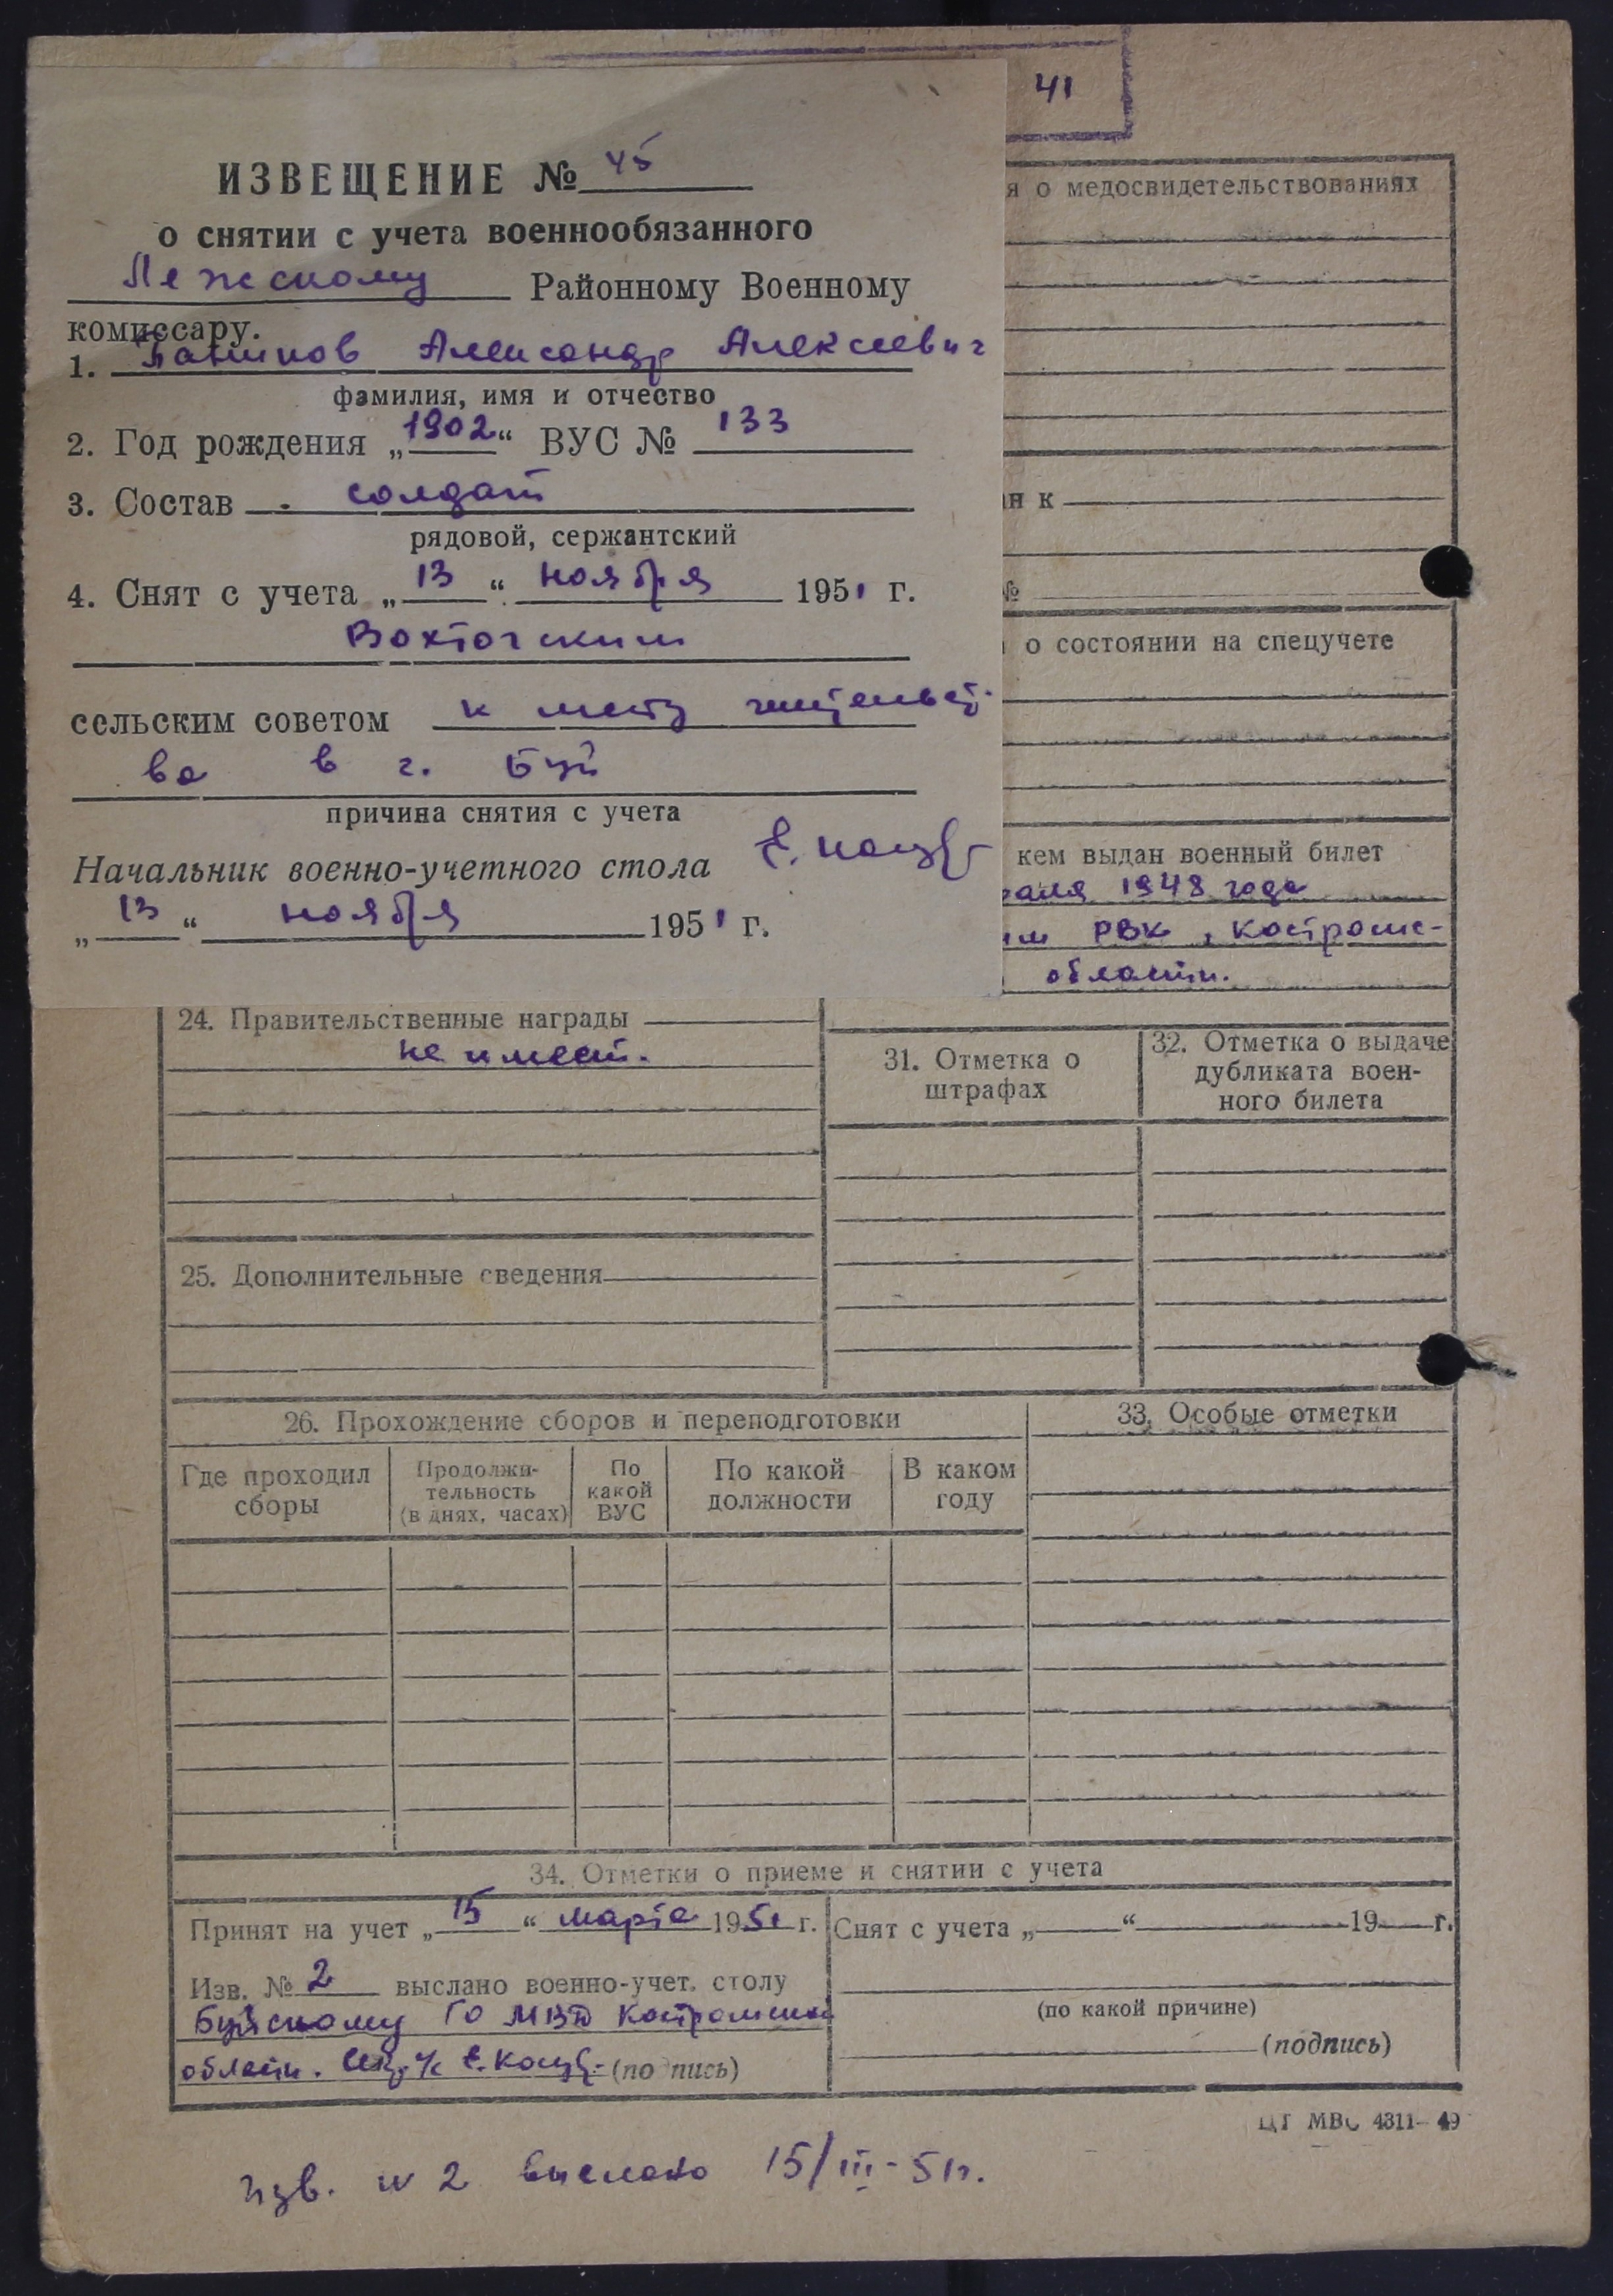 41
ИЗВЕЩЕНИЕ № 45
о снятии с учета военнообязанного
Лежскому Районному Военному
комиссару.
1. Александр Алексеевич
фамилия, имя и отчество
2. Год рождения „1902“ ВУС № 133
3. Состав солдат
рядовой, сержантский
4. Снят с учета „13“ ноября 1951 г.
Вохтогским
сельским советом к месту жительст-
ва в г. Буй
причина снятия с учета
Начальник военно-учетного стола
„13“ ноября 1951 г.
я о медосвидетельствованиях
н к
№
о состоянии на спецучете
кем выдан военный билет
раля 1948 года
им РВК, Костромс-
области.
24. Правительственные награды
не имеет.
25. Дополнительные сведения
31. Отметка о
штрафах
32. Отметка о выдаче
дубликата воен-
ного билета
26. Прохождение сборов и переподготовки
Где проходил
сборы
Продолжи-
тельность
(в днях, часах)
По
какой
ВУС
По какой
должности
В каком
году
33. Особые отметки
34. Отметки о приеме и снятии с учета
Принят на учет „15“ марта 1951 г.
Изв. № 2 выслано военно-учет. столу
Буйскому ГО МВД Костромской
области. (подпись)
Снят с учета „ “ 19 г.
(по какой причине)
(подпись)
ЦТ МВС 4311—49
Изв. № 2 выслано 15/III-51г.